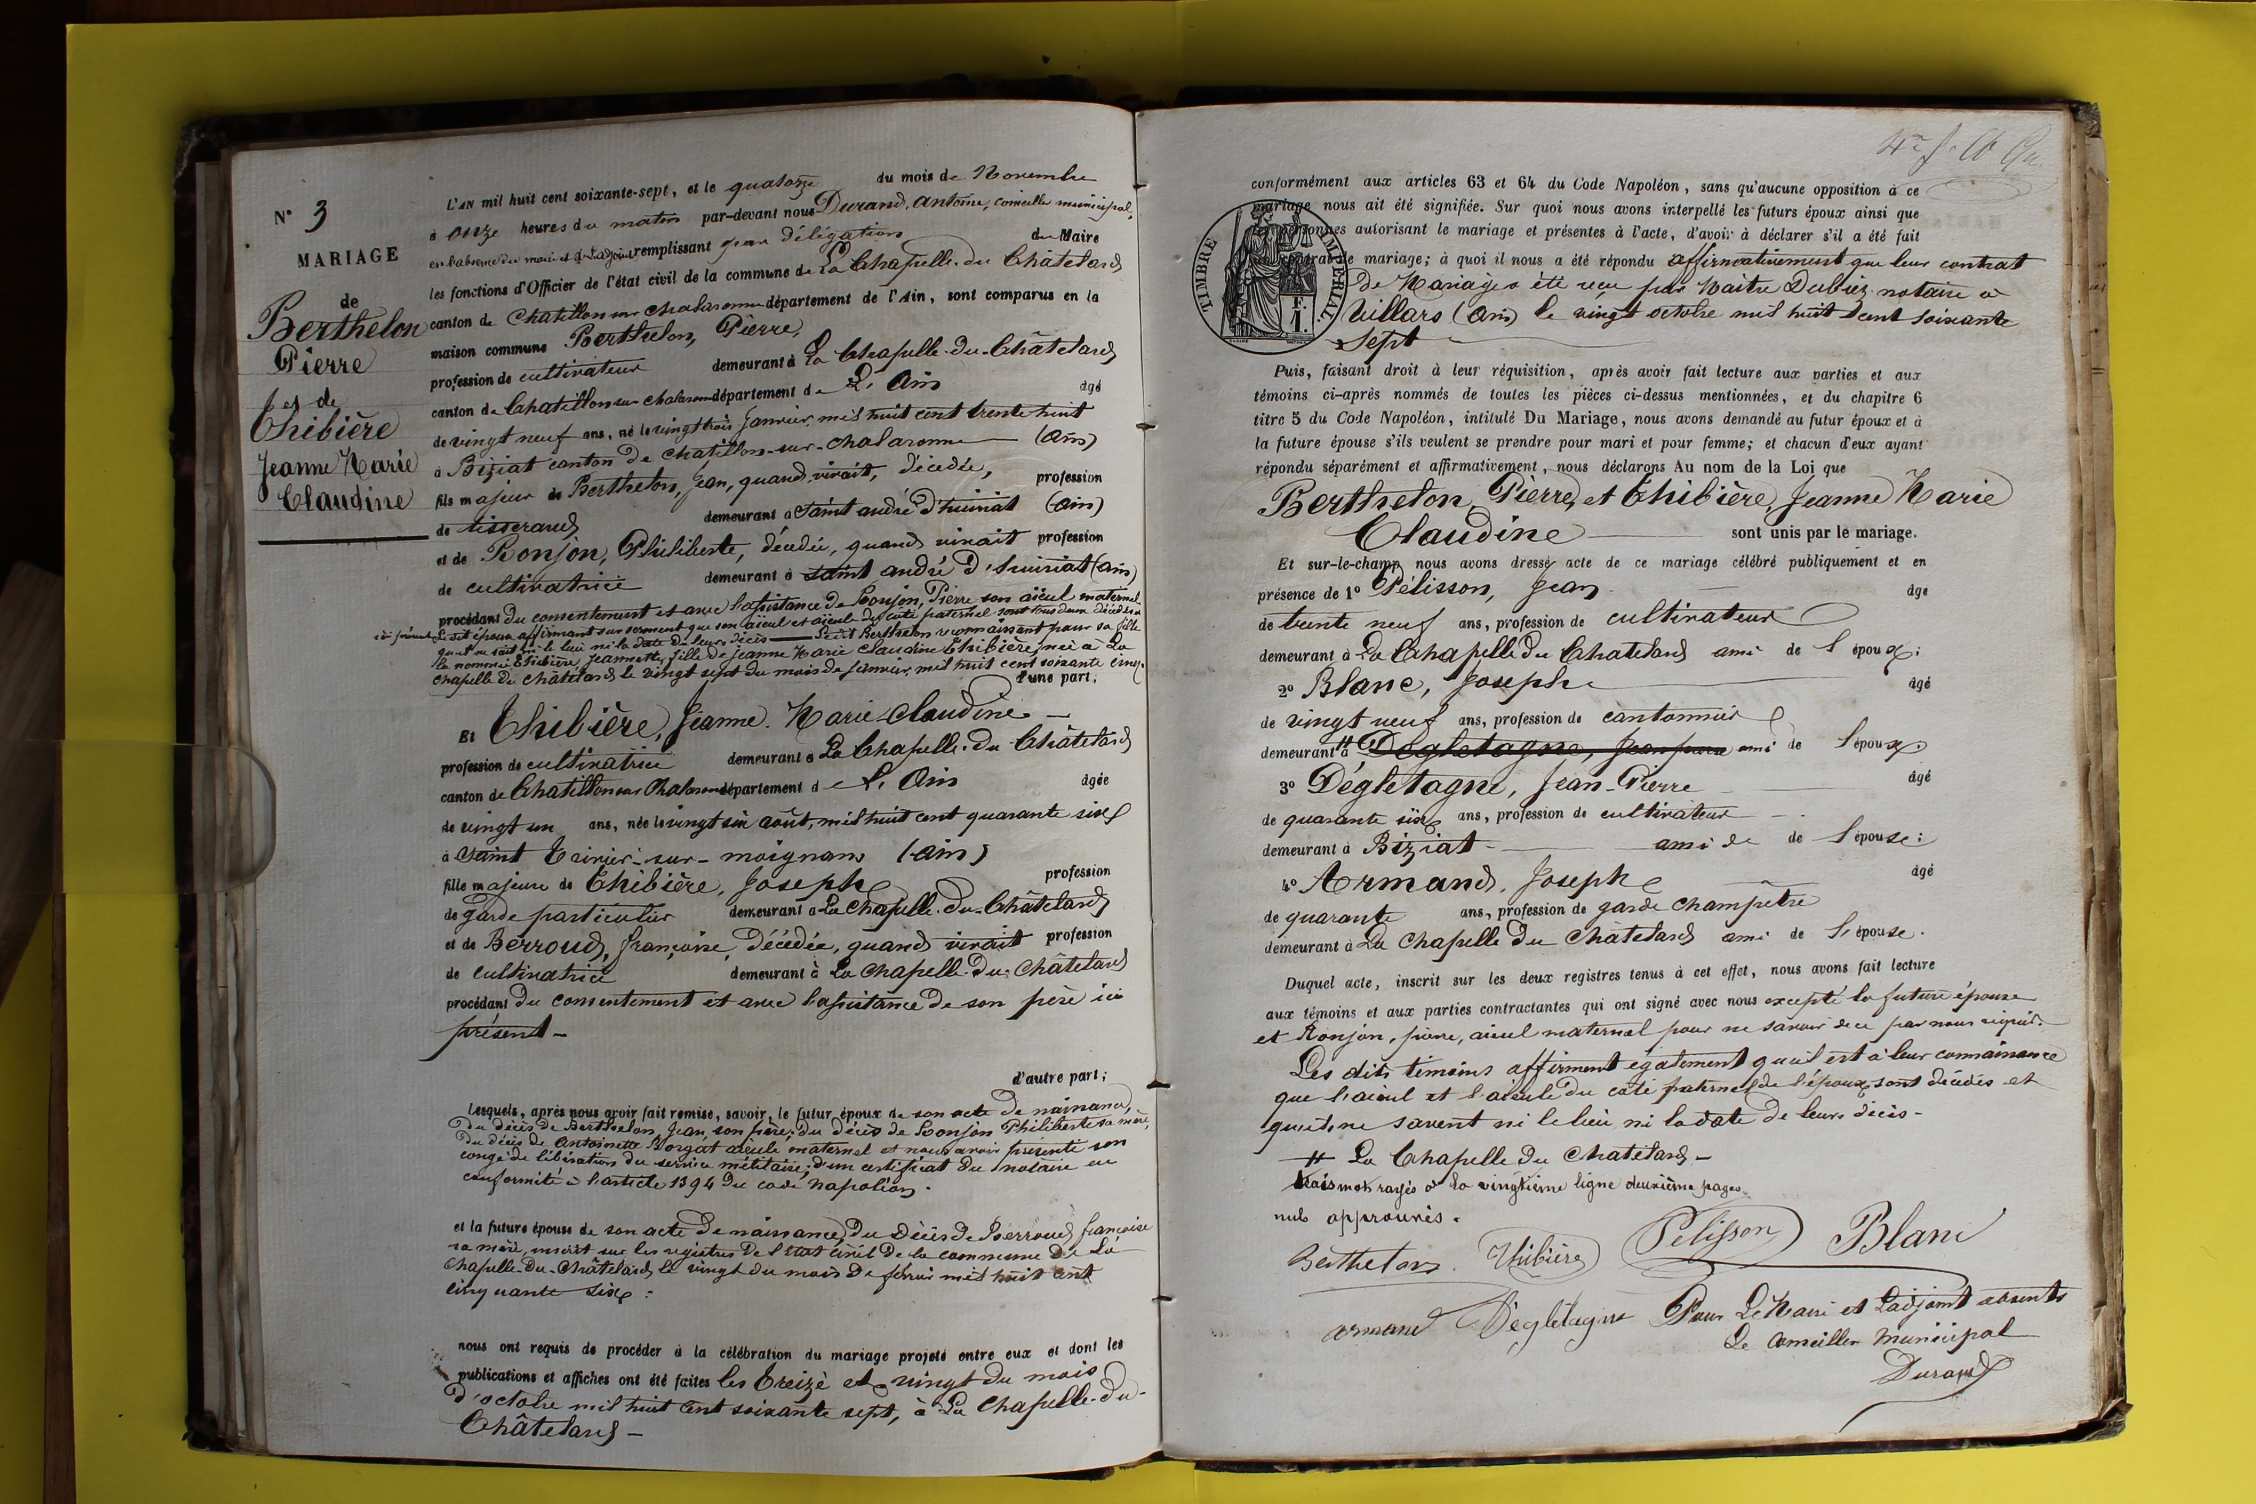 N° 3
MARIAGE
de
Berthelon
Pierre
et de
Thibière
Jeanne Marie
Claudine
L'AN mil huit cent soixante-sept, et le quatorze du mois de Novembre
à onze heures du matin par-devant nous Durand, Antoine, conseiller municipal,
en l'absence du maire et de l'adjoint remplissant par délégation du Maire
les fonctions d'Officier de l'état civil de la commune de La Chapelle-du-Châtelard
canton de Chatillon sur Chalaronne département de l'Ain, sont comparus en la
maison commune Berthelon, Pierre,
profession de cultivateur demeurant à La Chapelle-du-Châtelard
canton de Chatillon sur Chalaronne département de L'Ain âgé
de vingt neuf ans, né le vingt trois Janvier, mil huit cent trente huit
à Biziat canton de Chatillon-sur-Chalaronne (Ain)
fils majeur de Berthelon, Jean, quand vivait, décédée, profession
de tisserand demeurant à Saint andré d'huiriat (Ain)
et de Ronjon, Philiberte, décédée, quand vivait profession
de cultivatrice demeurant à Saint andré d'huiriat (Ain)
procédant du consentement et avec l'assistance de Ronjon, Pierre son aïeul maternel
ici présent Ledit époux affirmant sur serment que son aïeul et aïeule du coté paternel sont tous deux décédés et
qu'il ne sait ni le lieu ni la date de leurs décès — Ledit Berthelon reconnaissant pour sa fille
la nommée Thibière, Jeannette, fille de Jeanne Marie Claudine Thibière, née à La
chapelle du châtelard le vingt sept du mois de Janvier, mil huit cent soixante cinq.
d'une part,
Et Thibière, Jeanne-Marie-Claudine —
profession de cultivatrice demeurant à La Chapelle-du-Châtelard
canton de Chatillon sur Chalaronne département d e L'Ain âgée
de vingt un ans, née le vingt six août, mil huit cent quarante six
à Saint Trivier-sur-moignans (Ain)
fille majeure de Thibière, Joseph profession
de garde particulier demeurant à La Chapelle-Du-Châtelard
et de Berroud, françoise, décédée, quand vivait profession
de cultivatrice demeurant à La Chapelle-Du-Châtelard
procédant du consentement et avec l'assistance de son père ici
présent —
d'autre part;
Lesquels, après nous avoir fait remise, savoir, le futur époux de son acte de naissance,
du décès de Berthelon, Jean, son père; du décès de Ronjon Philiberte sa mère,
du décès de Antoinette Borgat aïeule maternel et nous avoir présenté son
congé de libération du service militaire; d'un certificat du notaire en
conformité à l'article 1394 du code Napoléon.
et la future épouse de son acte de naissance, du Décès de Berroud françoise
sa mère, inscrit sur les registres de l'état civil de la commune de La
Chapelle-Du-Châtelard le vingt du mois de février mil huit cent
cinquante six :
nous ont requis de procéder à la célébration du mariage projeté entre eux et dont les
publications et affiches ont été faites les treize et vingt du mois
d'octobre mil huit cent soixante sept, à La Chapelle-du-
Châtelard —
conformément aux articles 63 et 64 du Code Napoléon, sans qu'aucune opposition à ce
mariage nous ait été signifiée. Sur quoi nous avons interpellé les futurs époux ainsi que
personnes autorisant le mariage et présentes à l'acte, d'avoir à déclarer s'il a été fait
contrat de mariage; à quoi il nous a été répondu affirmativement que leur contrat
de Mariage a été reçu par Maitre Dubiez notaire à
Villars (Ain) le vingt octobre mil huit cent soixante
Sept
TIMBRE IMPÉRIAL
Puis, faisant droit à leur réquisition, après avoir fait lecture aux parties et aux
témoins ci-après nommés de toutes les pièces ci-dessus mentionnées, et du chapitre 6
titre 5 du Code Napoléon, intitulé Du Mariage, nous avons demandé au futur époux et à
la future épouse s'ils veulent se prendre pour mari et pour femme; et chacun d'eux ayant
répondu séparément et affirmativement, nous déclarons Au nom de la Loi que
Berthelon, Pierre, et Thibière, Jeanne Marie
Claudine — sont unis par le mariage.
Et sur-le-champ nous avons dressé acte de ce mariage célébré publiquement et en
présence de 1° Pélisson, Jean âgé
de trente neuf ans, profession de cultivateur
demeurant à La Chapelle Du Chatelard ami de l'époux;
2° Blanc, Joseph âgé
de vingt neuf ans, profession de cantonnier
demeurant à # Dégletagne, Jean pierre ami de l'époux
3° Dégletagne, Jean-Pierre âgé
de quarante six ans, profession de cultivateur
demeurant à Biziat — ami de de l'épouse:
4° Armand, Joseph âgé
de quarante ans, profession de garde champêtre
demeurant à La Chapelle Du Châtelard ami de l'épouse.
Duquel acte, inscrit sur les deux registres tenus à cet effet, nous avons fait lecture
aux témoins et aux parties contractantes qui ont signé avec nous excepté la future épouse
et Ronjon, pierre, aïeul maternel pour ne savoir de ce par nous requis.
Les dits témoins affirment également qu'il est à leur connaissance
que l'aïeul et l'aïeule du coté paternel de l'époux, sont décédés et
qu'ils ne savent ni le lieu ni la date de leurs décès -
# La Chapelle Du Chatelard -
trois mots rayés à la vingtième ligne deuxième page
nuls approuvés.
Berthelon Thibière Pelisson Blanc
armand Dégletagne Pour Le Maire et L'adjoint absents
Le Conseiller Municipal
Durand